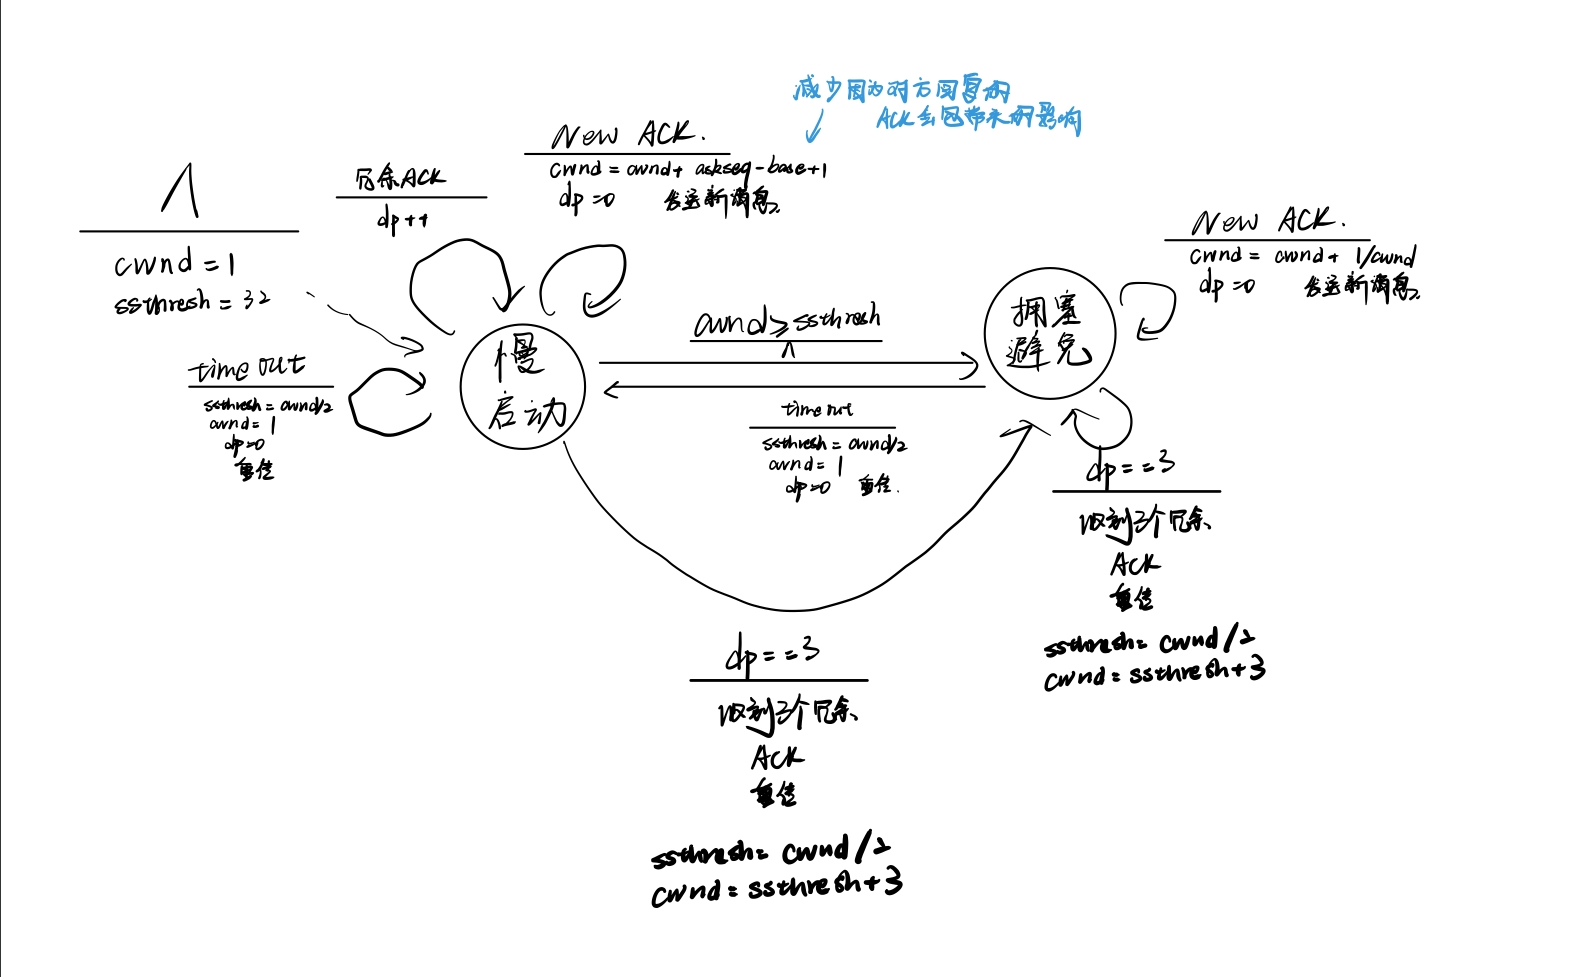 减少因为对方回复的
ACK丢包带来的影响
New ACK.
cwnd = cwnd + ackseq - base + 1
dp = 0 发送新消息
冗余ACK
dp++
Λ
cwnd = 1
ssthresh = 32
time out
ssthresh = cwnd/2
cwnd = 1
dp=0
重传
慢
启动
cwnd ≥ ssthresh
Λ
time out
ssthresh = cwnd/2
cwnd = 1
dp=0 重传.
拥塞
避免
New ACK.
cwnd = cwnd + 1/cwnd
dp = 0 发送新消息
dp==3
收到3个冗余
ACK
重传
ssthresh = cwnd/2
cwnd = ssthresh+3
dp==3
收到3个冗余
ACK
重传
ssthresh = cwnd/2
cwnd = ssthresh+3